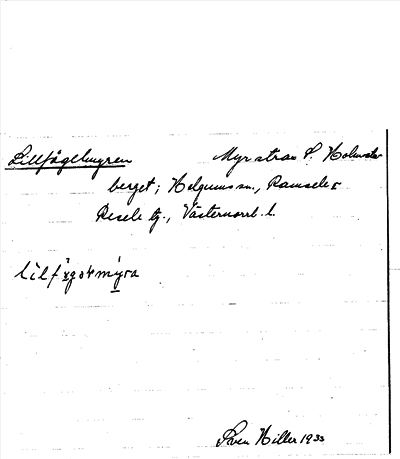 Lillfågelmyren Myr strax S. Holmsele
berget; Helgums sn., Ramsele o
Resele tg., Västernorrl. l.
lilfägotmýra
Sven Hiller 1933